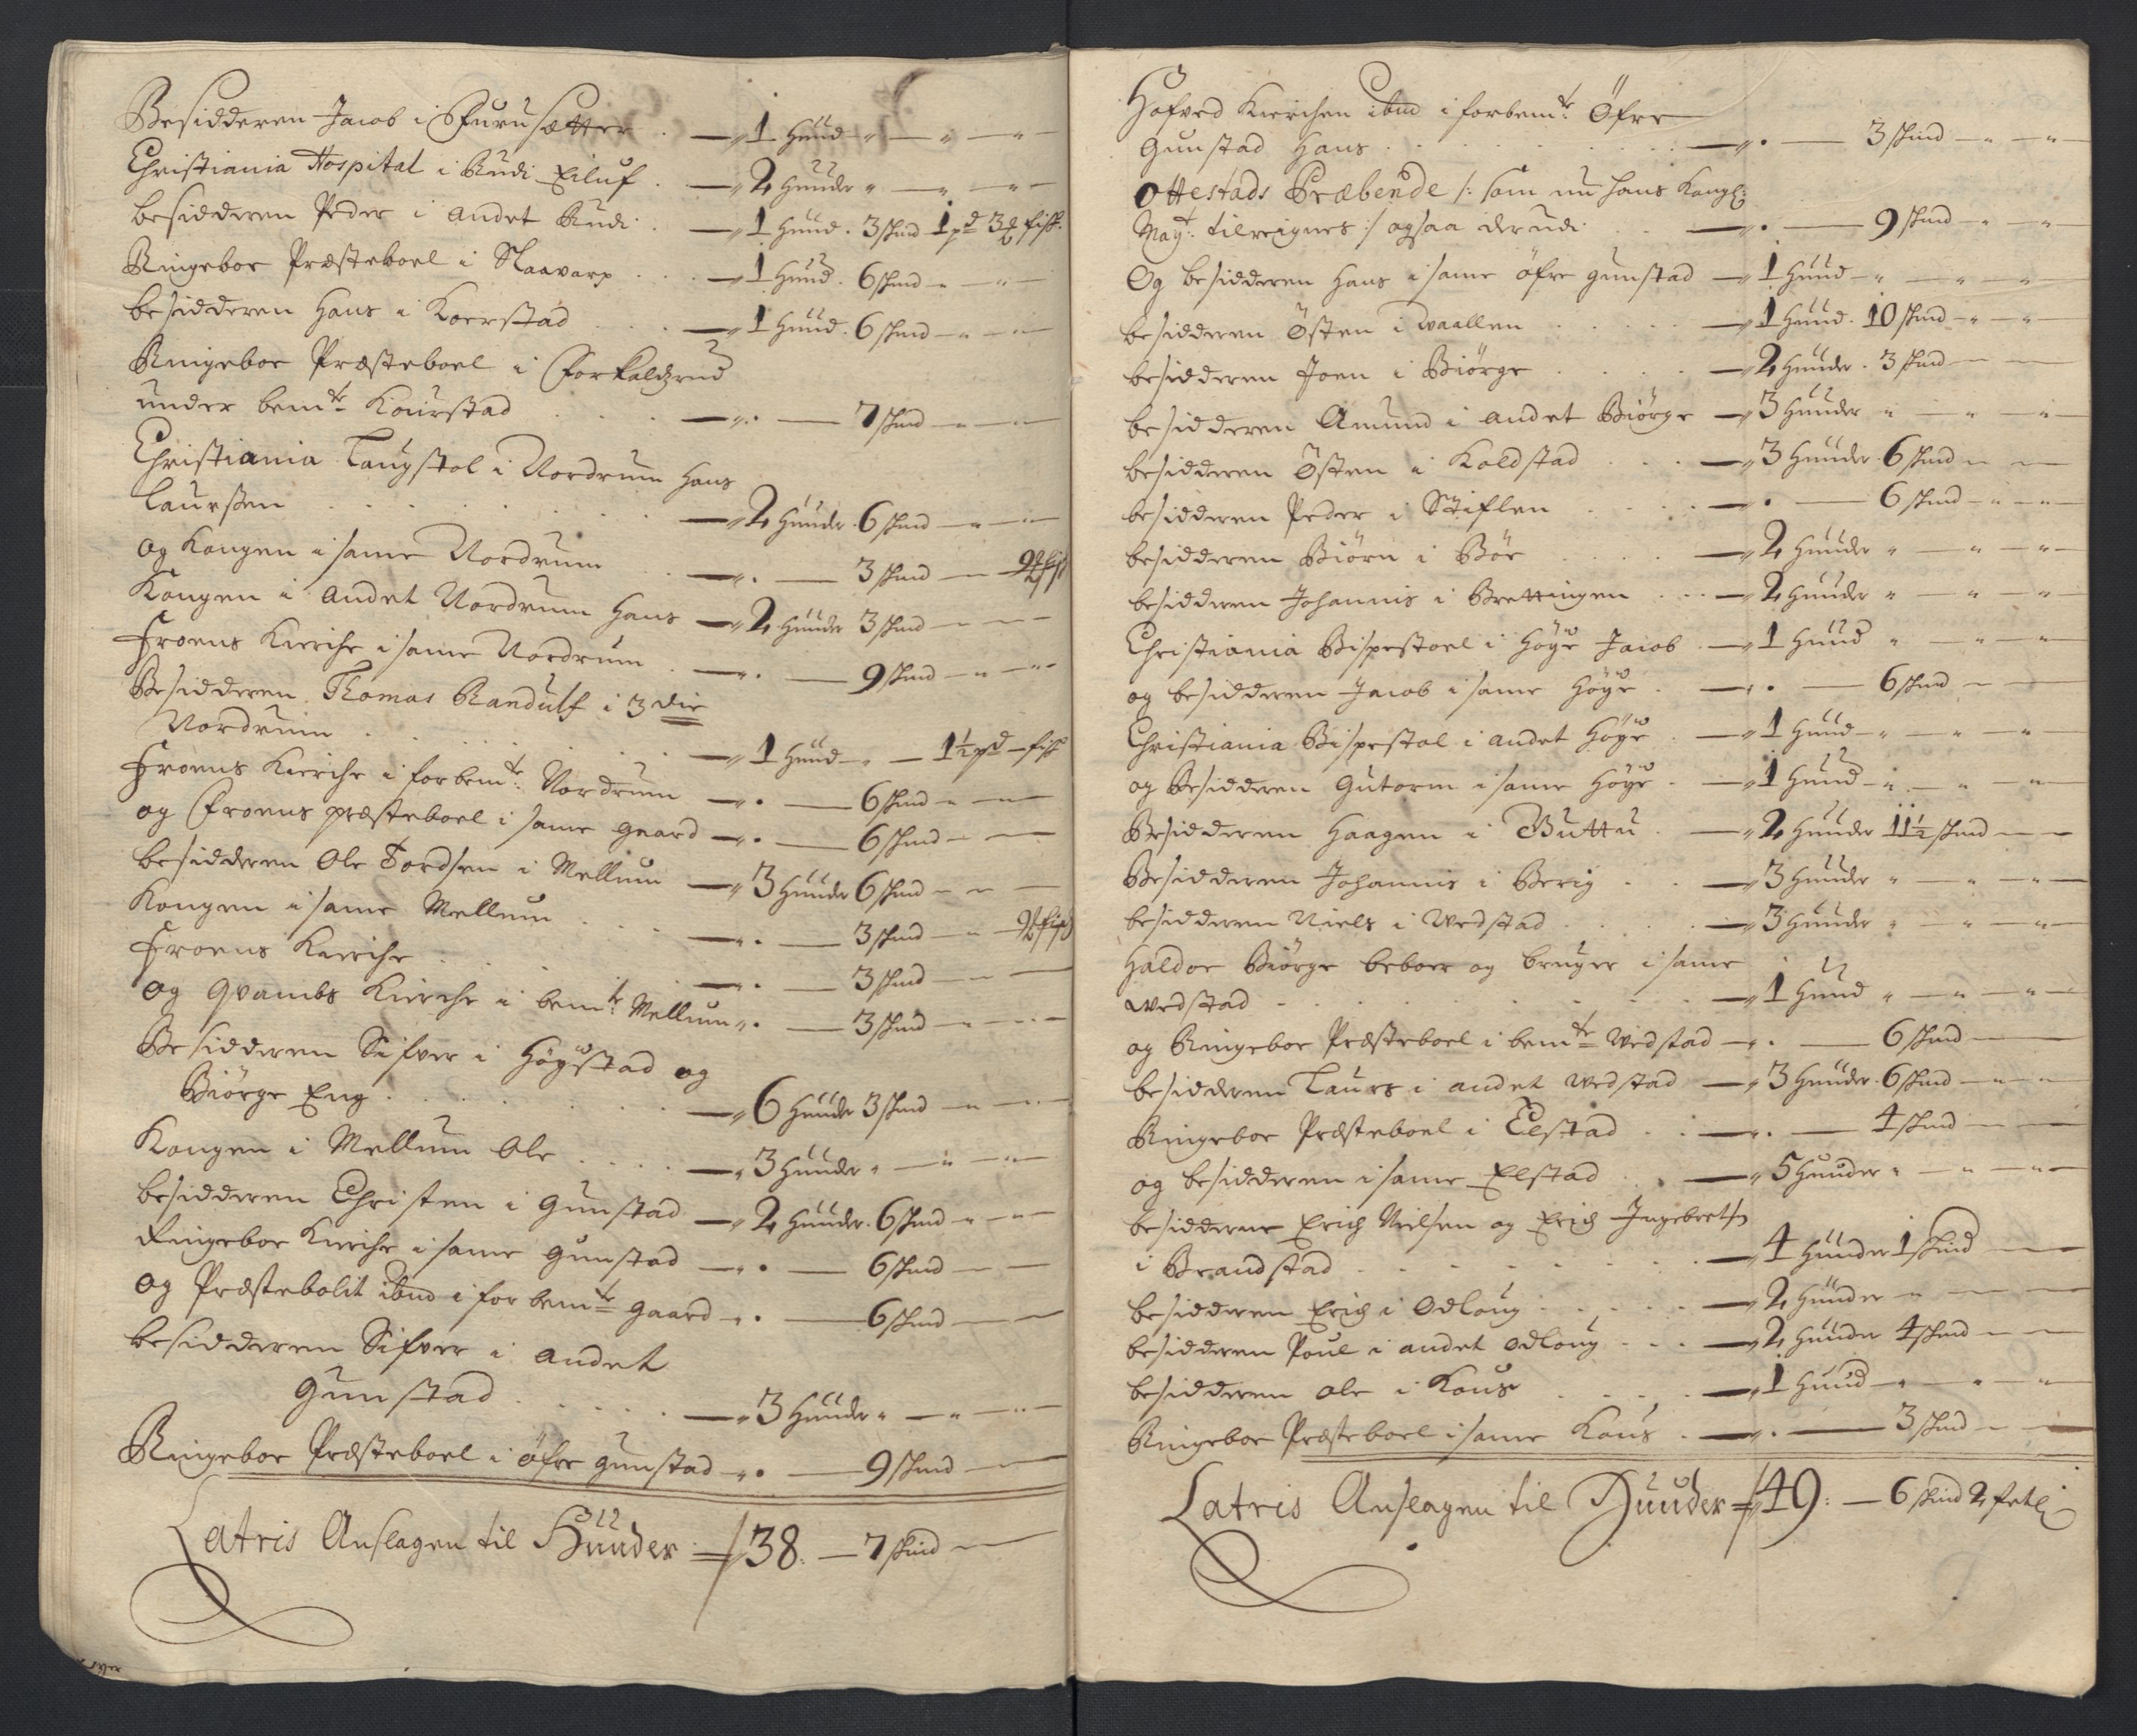 Besidderen Jacob i Furusætter . — 1 Huud " — " — "
Christiania Hospital i Rudi Eiluf . — 2 Huuder " — " — "
besidderen Peder i andet Rudi . — 1 Huud . 3 skind 1 pd 3 fisk.
Ringeboe Præsteboel i Slaavarp . . . — 1 Huud . 6 skind " — " —
besidderen Hans i Koerstad . . . — 1 Huud . 6 skind — " — " —
Ringeboe Præsteboel i
under bemte Kourstad . . . — " . — 7 skind — " — " —
Christiania Laugstol i Nordrum Hans
Laurssen . . . — 2 Huuder . 6 skind — " — " —
og Kongen i same Nordrum . . — " . — 3 skind — " — fisk
Kongen i andet Nordrum Hans — 2 Huuder 3 skind — " — " —
Froens Kierche i same Nordrum . — " . — 9 skind — " — " —
Besidderen Thomas Randulf i 3die
Nordrum . . . — 1 Huud — " — 1½ pd — fisk
Froens Kierche i forbemte Nordrum — " . — 6 skind — " —
og Froens præsteboel i same gaard — " . — 6 skind — " —
besidderen Ole Tordsen i Mellum — 3 Huuder 6 skind — " —
Kongen i same Mellum . . . — " . — 3 skind — " — fisk
Froens Kierche . . . — " . — 3 skind — " —
og Qvambs Kierche i bemte Mellum " . — 3 skind — " — " —
Besidderen Sifver i Høgstad og
Biörge Eng . . . — 6 Huuder 3 skind — " — " —
Kongen i Mellum Ole . . . . — 3 Huuder " — " — " —
besidderen Christen i Gunstad — 2 Huuder . 6 skind — " — " —
Ringeboe Kierche i same Gunstad — " . — 6 skind — " —
og Præstebolit ibnd i forbemte gaard — " . — 6 skind — " —
besidderen Sifver i andet
Gunstad . . . — 3 Huuder " — " — " —
Ringeboe Præsteboel i øfre gunstad — " . — 9 skind — " —
Latris Anslagen til Huuder — 38. — 7 skind —
Hofved Kierchen ibnd i forbemte Öfre
Gunstad Hans . . . — " . — 3 skind — " — " —
Ottestads Præbende /: som nu Hans Kongl:
Mayt. tilreignes :/ ogsaa derudi . . — " . — 9 skind — " — " —
Og besidderen Hans i same öfre gunstad — 1 Huud — " — " — " —
besidderen Östen i Vaallen . . . — 1 Huud . 10 skind — " — " —
besidderen Joen i Biörge . . . . — 2 Huuder . 3 skind — " —
besidderen Amund i andet Biörge — 3 Huuder " — " — " —
besidderen Östen i Koldstad . . . — 3 Huuder . 6 skind — " —
besidderen Peder i Stiflen . . . — " . — 6 skind — " — " —
besidderen Biörn i Böe . . . — 2 Huuder " — " — " —
besidderen Johannis i Brettingen . . . — 2 Huuder " — " — " —
Christiania Bispestoel i Høye Jacob . — 1 Huud " — " — " —
og besidderen Jacob i same Høye . — " . — 6 skind — " —
Christiania Bispestol i andet Høye . — 1 Huud — " — " — " —
og Besidderen Gutorm i same Høye . — 1 Huud — " — " — " —
Besidderen Haagen i Buttu . — 2 Huuder 11½ skind — " —
Besidderen Johannis i Berig . . — 3 Huuder " — " — " —
besidderen Niels i Wedstad . . . — 3 Huuder " — " — " —
Haldor Biörge beboer og bruger i same
Wedstad . . . — 1 Huud " — " — " —
og Ringeboe Præsteboel i bemte Wedstad — " . — 6 skind — " —
besidderen Laurs i andet Wedstad — 3 Huuder . 6 skind — " — " —
Ringeboe Præsteboel i Elstad . . — " . — 4 skind — " —
og besidderen i same Elstad . . — 5 Huuder " — " — " —
besidderne Erich Nielsen og Erich Ingebretsn
i Brandstad . . . — 4 Huuder 1 skind — " —
besidderen Erich i Odloug . . . — 2 Huuder — " — " —
besidderen Poul i andet Odloug . . . — 2 Huuder 4 skind — " —
besidderen Ole i Kous . . . — 1 Huud — " — " — " —
Ringeboe Præsteboel i same Kous . — " . — 3 skind — " —
Latris Anslagen til Huuder — 49: — 6 skind 2